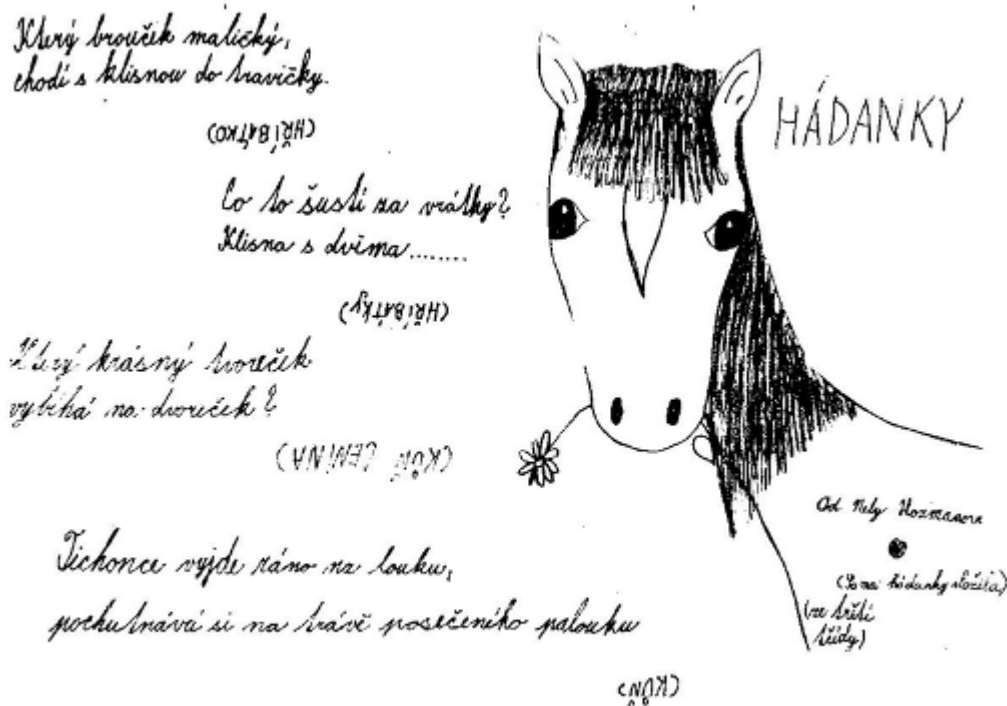 HÁDANKY
Který brouček maličký,
chodí s klisnou do travičky.
(HŘÍBÁTKO)
Co to šustí za vrátky?
Klisna s dvěma........
(HŘÍBÁTKY)
Který krásný tvoreček
vybíhá na dvoreček?
(KŮŇ
Tichonce vyjde ráno na louku,
pochutnává si na trávě posečeného palouku
(KŮŇ)
Od Nely
(Sama hádanky složila)
(ze třetí
třídy)